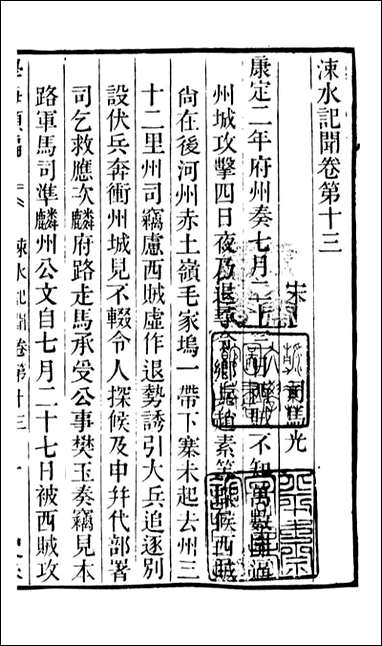 涑水記聞卷第十三
宋 司馬光
康定二年府州奏七月二十三日西賊不知萬數圍遶
州城攻擊四日夜乃退尋令鄉兵趙素等探候西賊
尙在後河州赤土嶺毛家塢一帶下寨未起去州三
十二里州司竊慮西賊虛作退勢誘引大兵追逐別
設伏兵奔衝州城見不輟令人探候及申幷代部署
司乞救應次麟府路走馬承受公事樊玉奏竊見本
路軍馬司準麟州公文自七月二十七日被西賊攻
學海類編 涑水記聞卷第十三 一